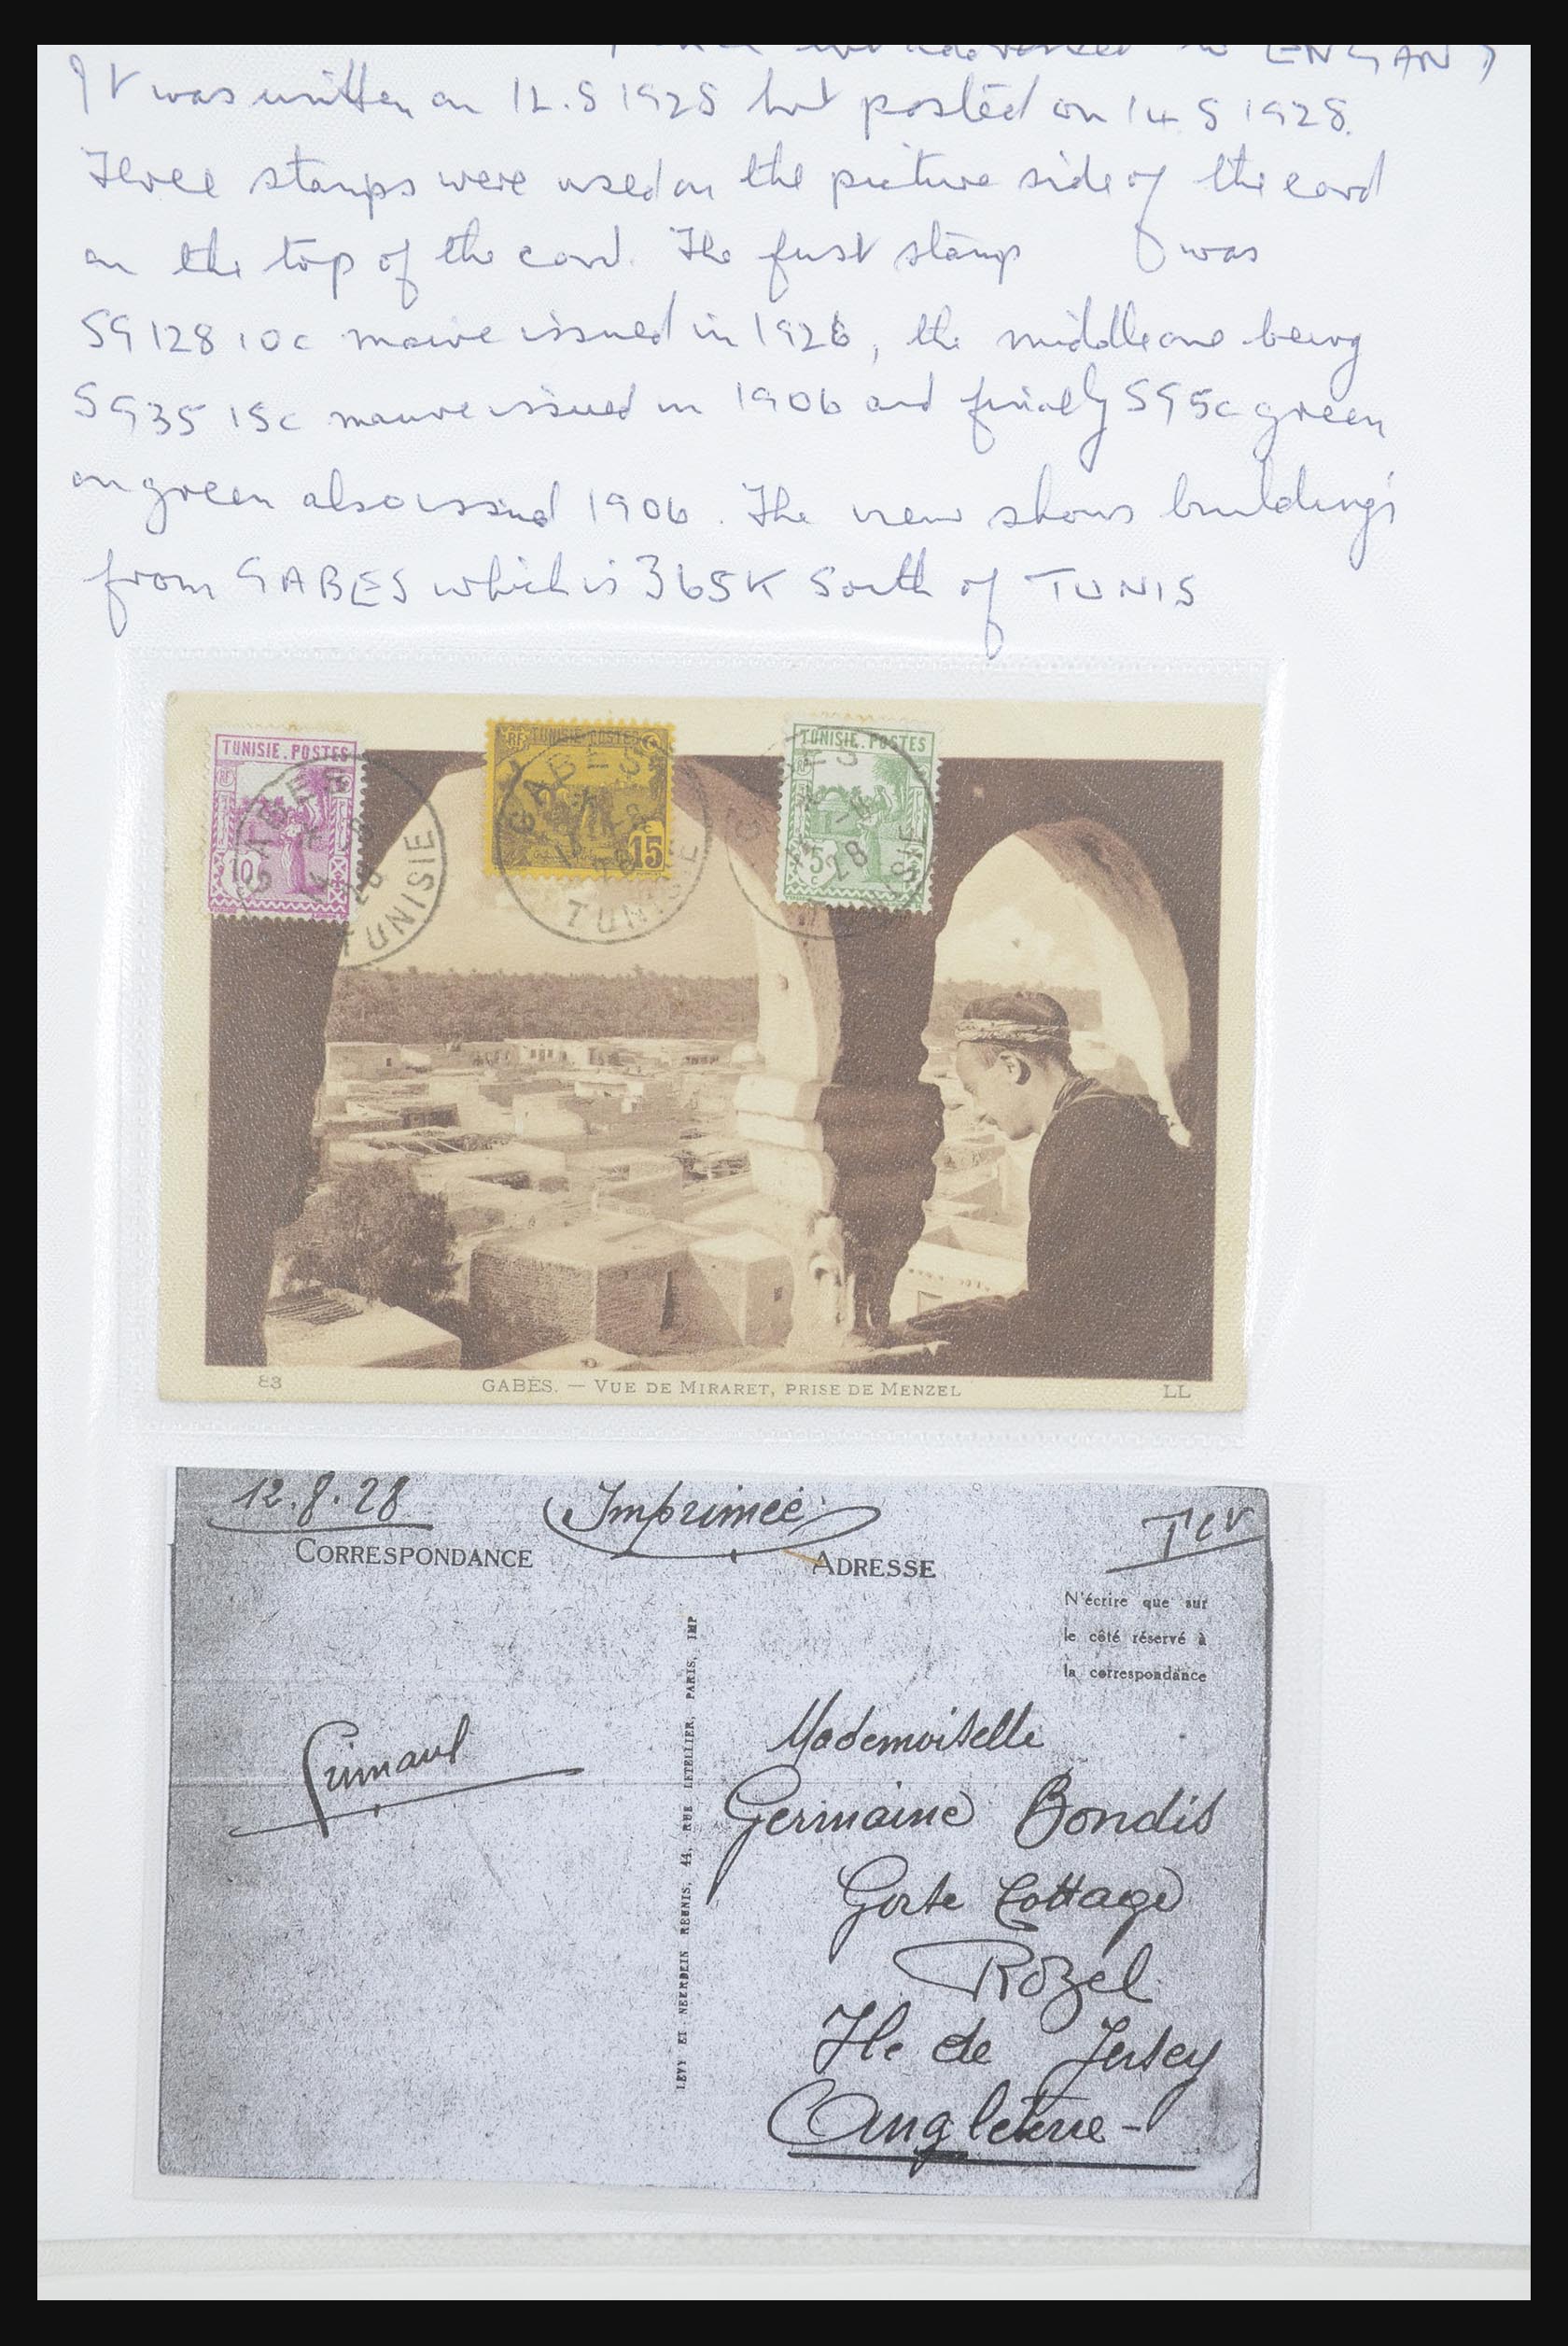 addressed to ENGLAND
It was written on 12.8 1928 but posted on 14.8 1928.
Three stamps were used on the picture side of the card
on the top of the card. The first stamp was
SG128 10c mauve issued in 1926, the middle one being
SG35 15c mauve issued in 1906 and finally SG 5c green
on green also issued 1906. The view shows buildings
from GABES which is 365K South of TUNIS
TUNISIE.POSTES
RF
10
GABES
28
TUNISIE
RF TUNISIE-POSTES
15
GABES
TUNISIE
TUNISIE.POSTES
RF
5
c
28
83
GABÈS. — VUE DE MIRARET, PRISE DE MENZEL
LL
12.8.28
Imprimée
TCV
CORRESPONDANCE
ADRESSE
N'écrire que sur
le côté réservé à
la correspondance
LEVY ET NEURDEIN REUNIS, 44, RUE LETELLIER, PARIS, IMP
Grimaul
Mademoiselle
Germaine Bondis
Gorte Cottage
Rozel
Ile de Jersey
Angleterre-